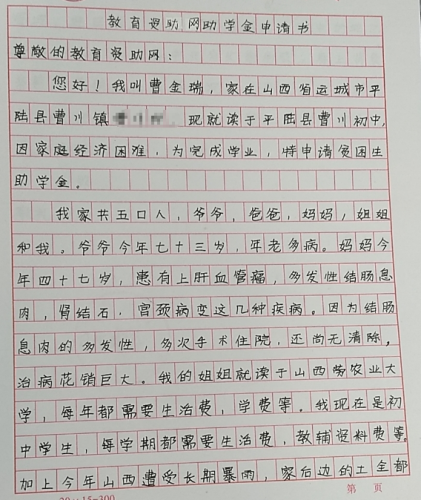 教育资助网助学金申请书
尊敬的教育资助网：
您好！我叫曹金瑞，家在山西省运城市平
陆县曹川镇 现就读于平陆县曹川初中，
因家庭经济困难，为完成学业，特申请贫困生
助学金。
我家共五口人，爷爷，爸爸，妈妈，姐姐
和我。爷爷今年七十三岁，年老多病。妈妈今
年四十七岁，患有上肝血管瘤，多发性结肠息
肉，肾结石，宫颈病变这几种疾病。因为结肠
息肉的多发性，多次手术住院，还尚无清除，
治病花销巨大。我的姐姐就读于山西农业大
学，每年都需要生活费，学费等。我现在是初
中学生，每学期都需要生活费，教辅资料费等。
加上今年山西遭受长期暴雨，家后边的土全都
20×15=300
第 页